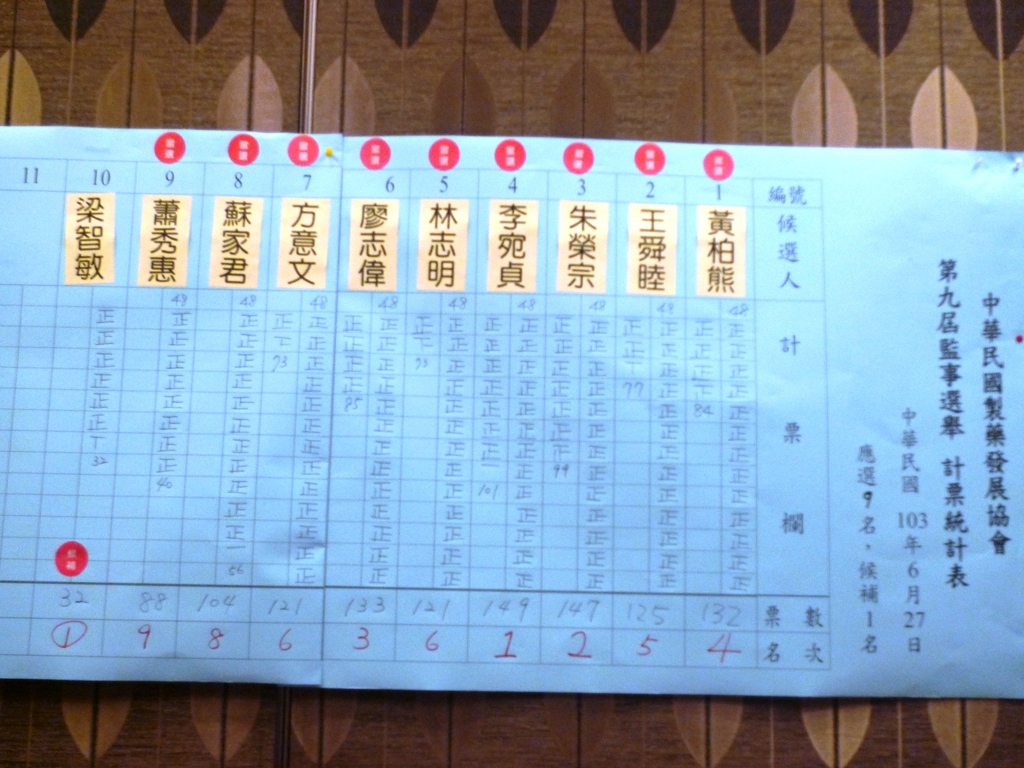 中華民國製藥發展協會
第九屆監事選舉 計票統計表
中華民國 103年6月27日
應選9名，候補1名
編號 1 2 3 4 5 6 7 8 9 10 11
候選人 黃柏熊 王舜睦 朱榮宗 李宛貞 林志明 廖志偉 方意文 蘇家君 蕭秀惠 梁智敏
當選 當選 當選 當選 當選 當選 當選 當選 當選
計票欄
48 48 48 48 48 48 48 48 48
84 77 99 101 73 85 73 56 40 32
候補
票數 132 125 147 149 121 133 121 104 88 32
名次 4 5 2 1 6 3 6 8 9 ①